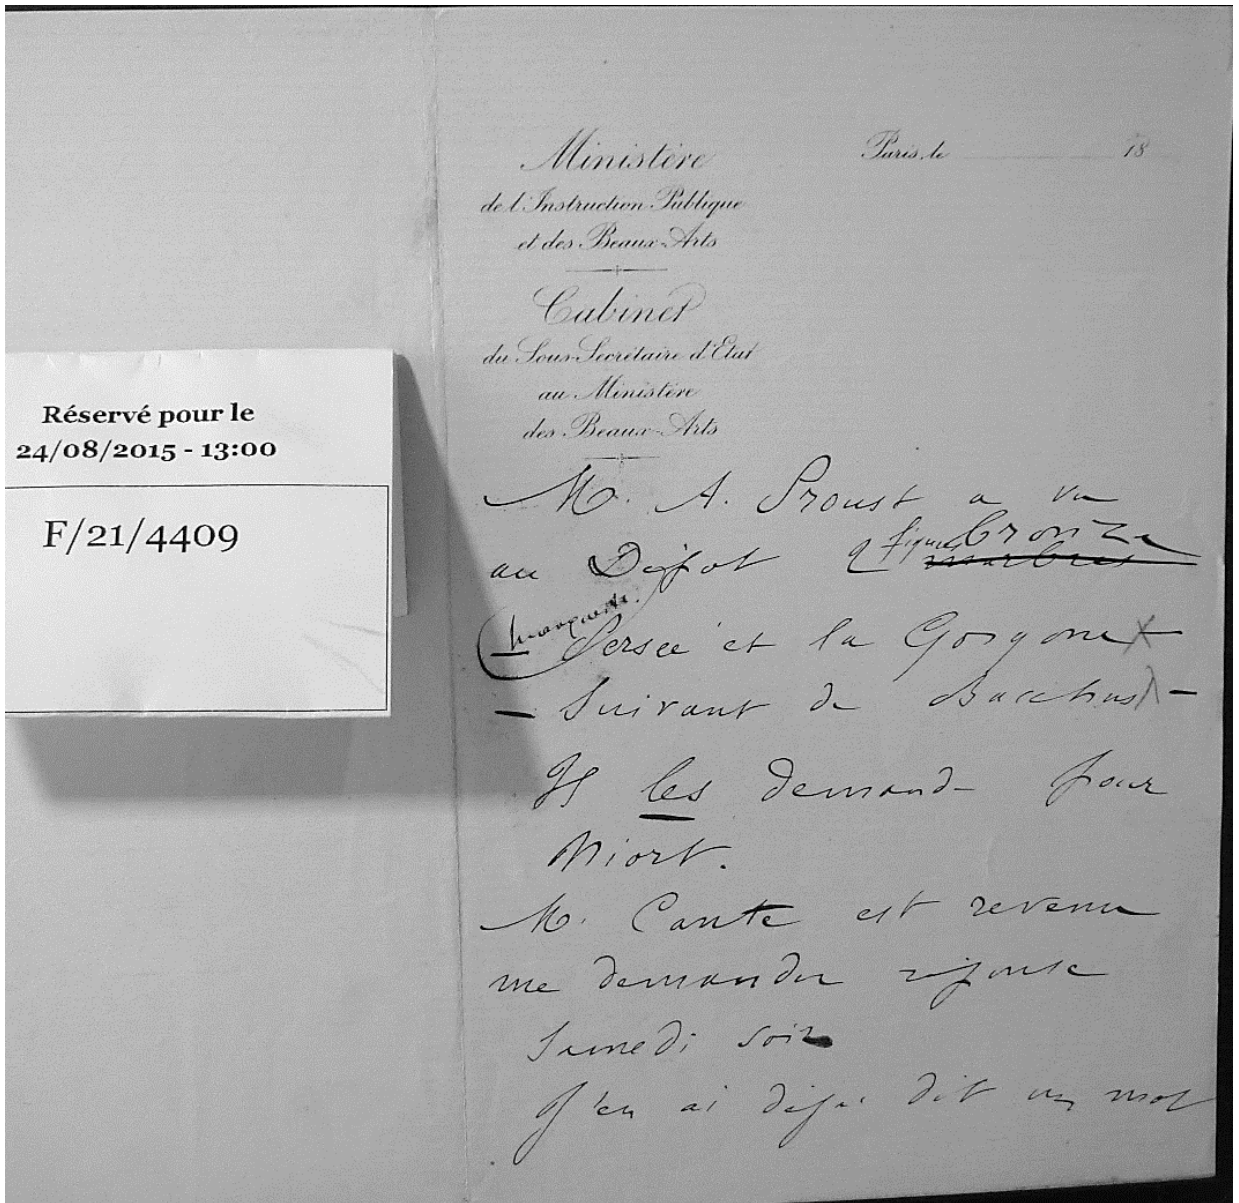 Réservé pour le
24/08/2015 - 13:00
F/21/4409
Ministère
de l'Instruction Publique
et des Beaux-Arts
Paris, le 18
Cabinet
du Sous-Secrétaire d'Etat
au Ministère
des Beaux-Arts
M. A. Proust a vu
au Dépot 2 figures bronze marbres
(Marqueste.
Persée et la Gorgone X
- Suivant de Bacchus -
Il les demande pour
Niort.
M. Cante est revenu
me demander réponse
Samedi soir
J'en ai déjà dit un mot